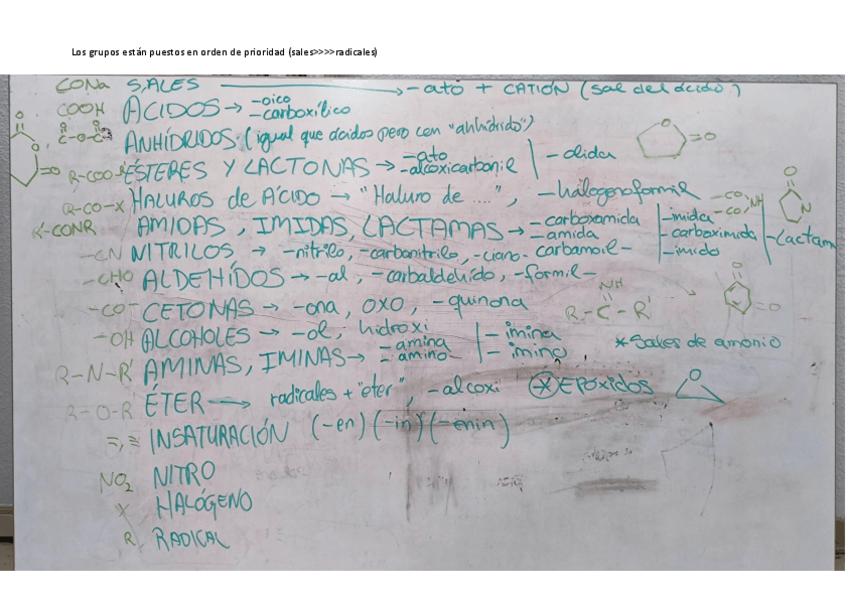 Los grupos están puestos en orden de prioridad (sales>>>>radicales)
CONa SALES → -ato + CATIÓN (sal del ácido)
COOH ÁCIDOS → -oico -carboxílico
ANHÍDRIDOS (igual que ácidos pero con "anhídrido")
R-COO-R' ÉSTERES Y LACTONAS → -ato -alcoxicarbonil | -olida
R-CO-X HALUROS de ÁCIDO → "Haluro de ....", -halogenoformil
R'-CONR AMIDAS, IMIDAS, LACTAMAS → -carboxamida -amida carbamoil- | -imida -carboximida -imido | -Lactam
-CN NITRILOS → -nitrilo, -carbonitrilo, -ciano-
-CHO ALDEHÍDOS → -al, -carbaldehído, -formil-
-CO- CETONAS → -ona, oxo, -quinona
-OH ALCOHOLES → -ol, hidroxi
R-N-R' AMINAS, IMINAS → -amina -amino- | -imina -imino
NH
R-C-R'
*Sales de amonio
R-O-R' ÉTER → radicales + "eter", -alcoxi * EPÓXIDOS
=, ≡ INSATURACIÓN (-en) (-in) (-enin)
NO2 NITRO
X HALÓGENO
R RADICAL